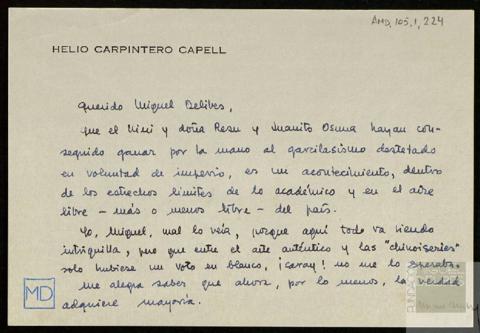 AMD, 105, 1, 224
HELIO CARPINTERO CAPELL
Querido Miguel Delibes,
que el Nini y doña Resu y Juanito Osuna hayan con-
seguido ganar por la mano al garcilasismo destetado
en voluntad de imperio, es un acontecimiento, dentro
de los estrechos límites de lo académico y en el aire
libre – más o menos libre – del país.
Yo, Miguel, mal lo veía, porque aquí todo va siendo
intriguilla, pero que entre el arte auténtico y las "chinoiseries"
solo hubiese un voto en blanco, ¡caray! no me lo esperaba.
Me alegra saber que ahora, por lo menos, la verdad
adquiere mayoría.
MD
FUNDACIÓN